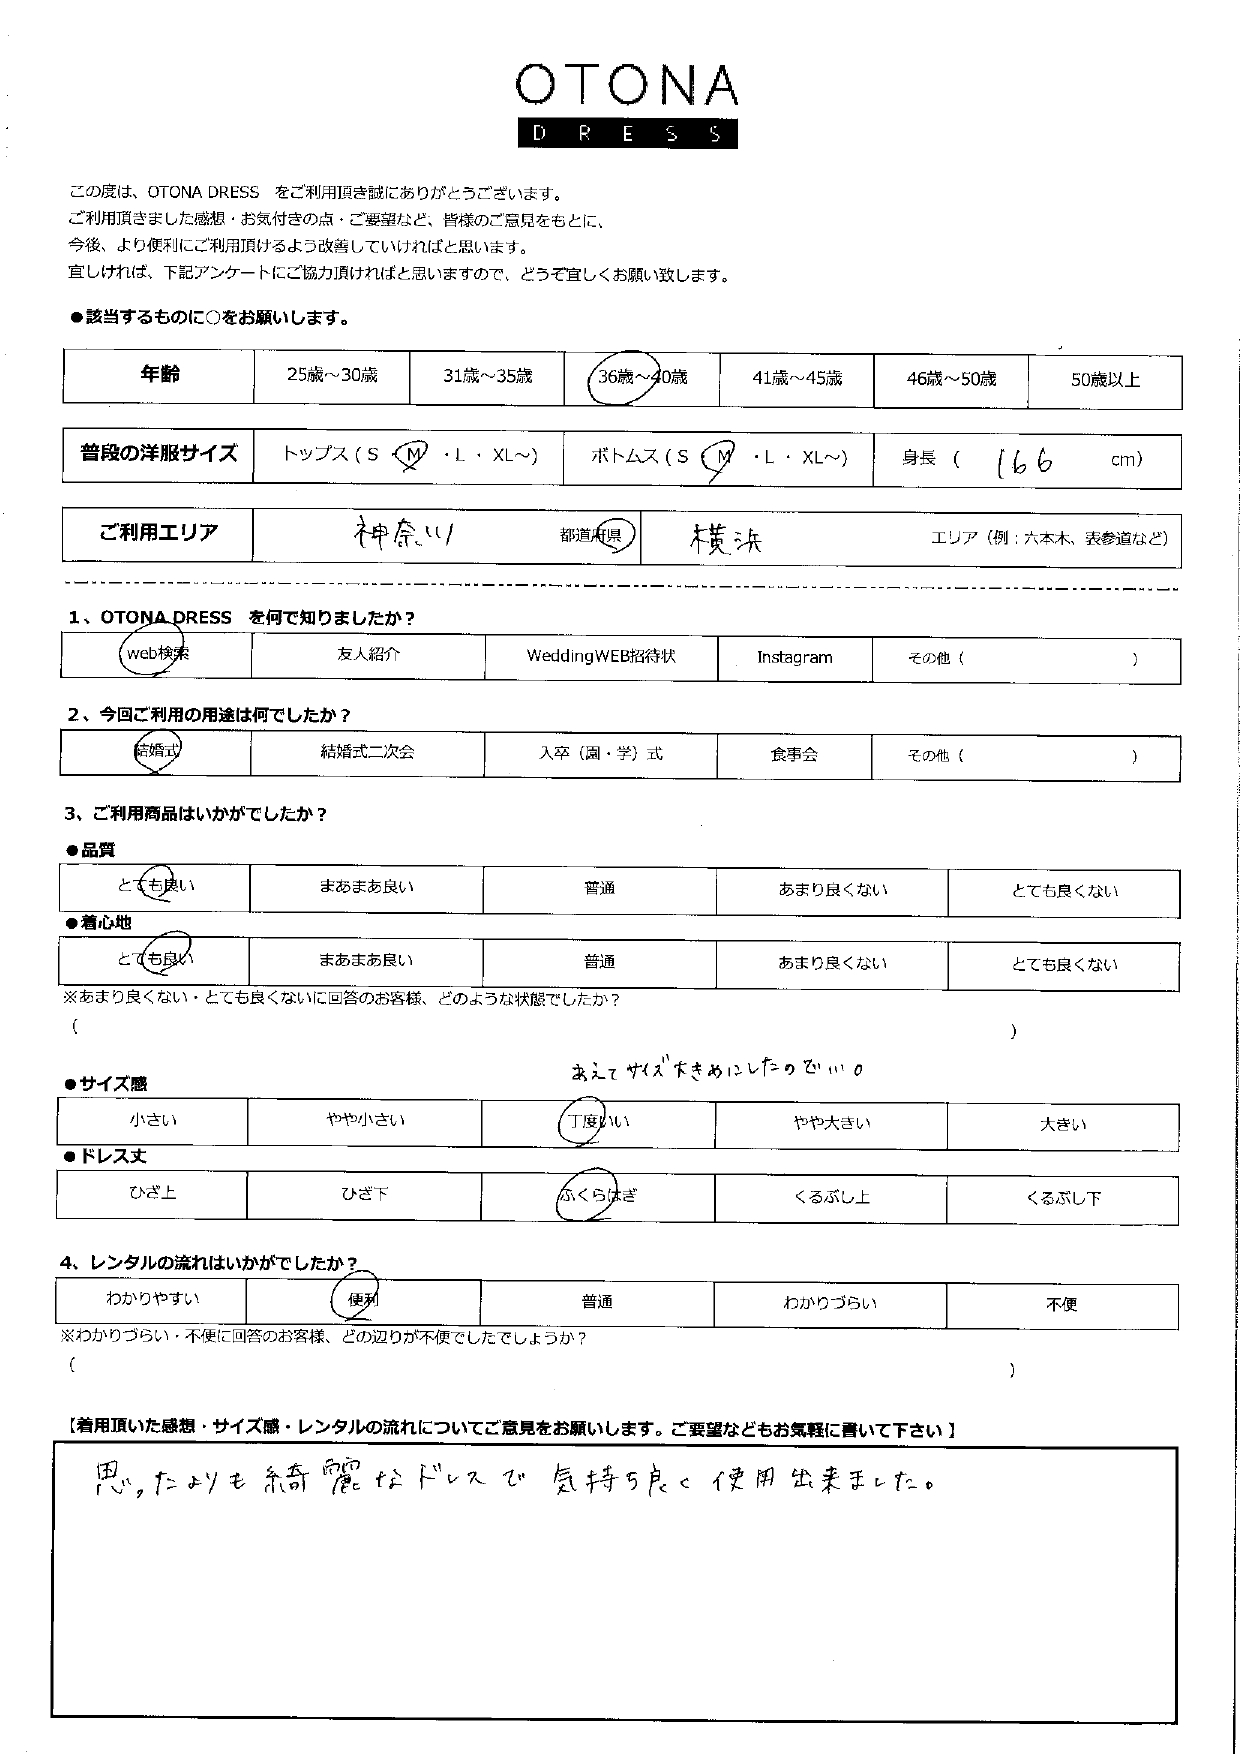 OTONA
DRESS
この度は、OTONA DRESS をご利用頂き誠にありがとうございます。
ご利用頂きました感想・お気付きの点・ご要望など、皆様のご意見をもとに、
今後、より便利にご利用頂けるよう改善していければと思います。
宜しければ、下記アンケートにご協力頂ければと思いますので、どうぞ宜しくお願い致します。
●該当するものに○をお願いします。
年齢 25歳～30歳 31歳～35歳 36歳～40歳 41歳～45歳 46歳～50歳 50歳以上
普段の洋服サイズ トップス ( S ・ M ・ L ・ XL～) ボトムス ( S ・ M ・ L ・ XL～) 身長 ( 166 cm)
ご利用エリア 神奈川 都道府県 横浜 エリア（例：六本木、表参道など）
1、OTONA DRESS を何で知りましたか？
web検索 友人紹介 WeddingWEB招待状 Instagram その他 ( )
2、今回ご利用の用途は何でしたか？
結婚式 結婚式二次会 入卒（園・学）式 食事会 その他 ( )
3、ご利用商品はいかがでしたか？
●品質
とても良い まあまあ良い 普通 あまり良くない とても良くない
●着心地
とても良い まあまあ良い 普通 あまり良くない とても良くない
※あまり良くない・とても良くないに回答のお客様、どのような状態でしたか？
( )
あえてサイズ大きめにしたので…。
●サイズ感
小さい やや小さい 丁度いい やや大きい 大きい
●ドレス丈
ひざ上 ひざ下 ふくらはぎ くるぶし上 くるぶし下
4、レンタルの流れはいかがでしたか？
わかりやすい 便利 普通 わかりづらい 不便
※わかりづらい・不便に回答のお客様、どの辺りが不便でしたでしょうか？
( )
【着用頂いた感想・サイズ感・レンタルの流れについてご意見をお願いします。ご要望などもお気軽に書いて下さい 】
思ったよりも綺麗なドレスで 気持ち良く使用出来ました。